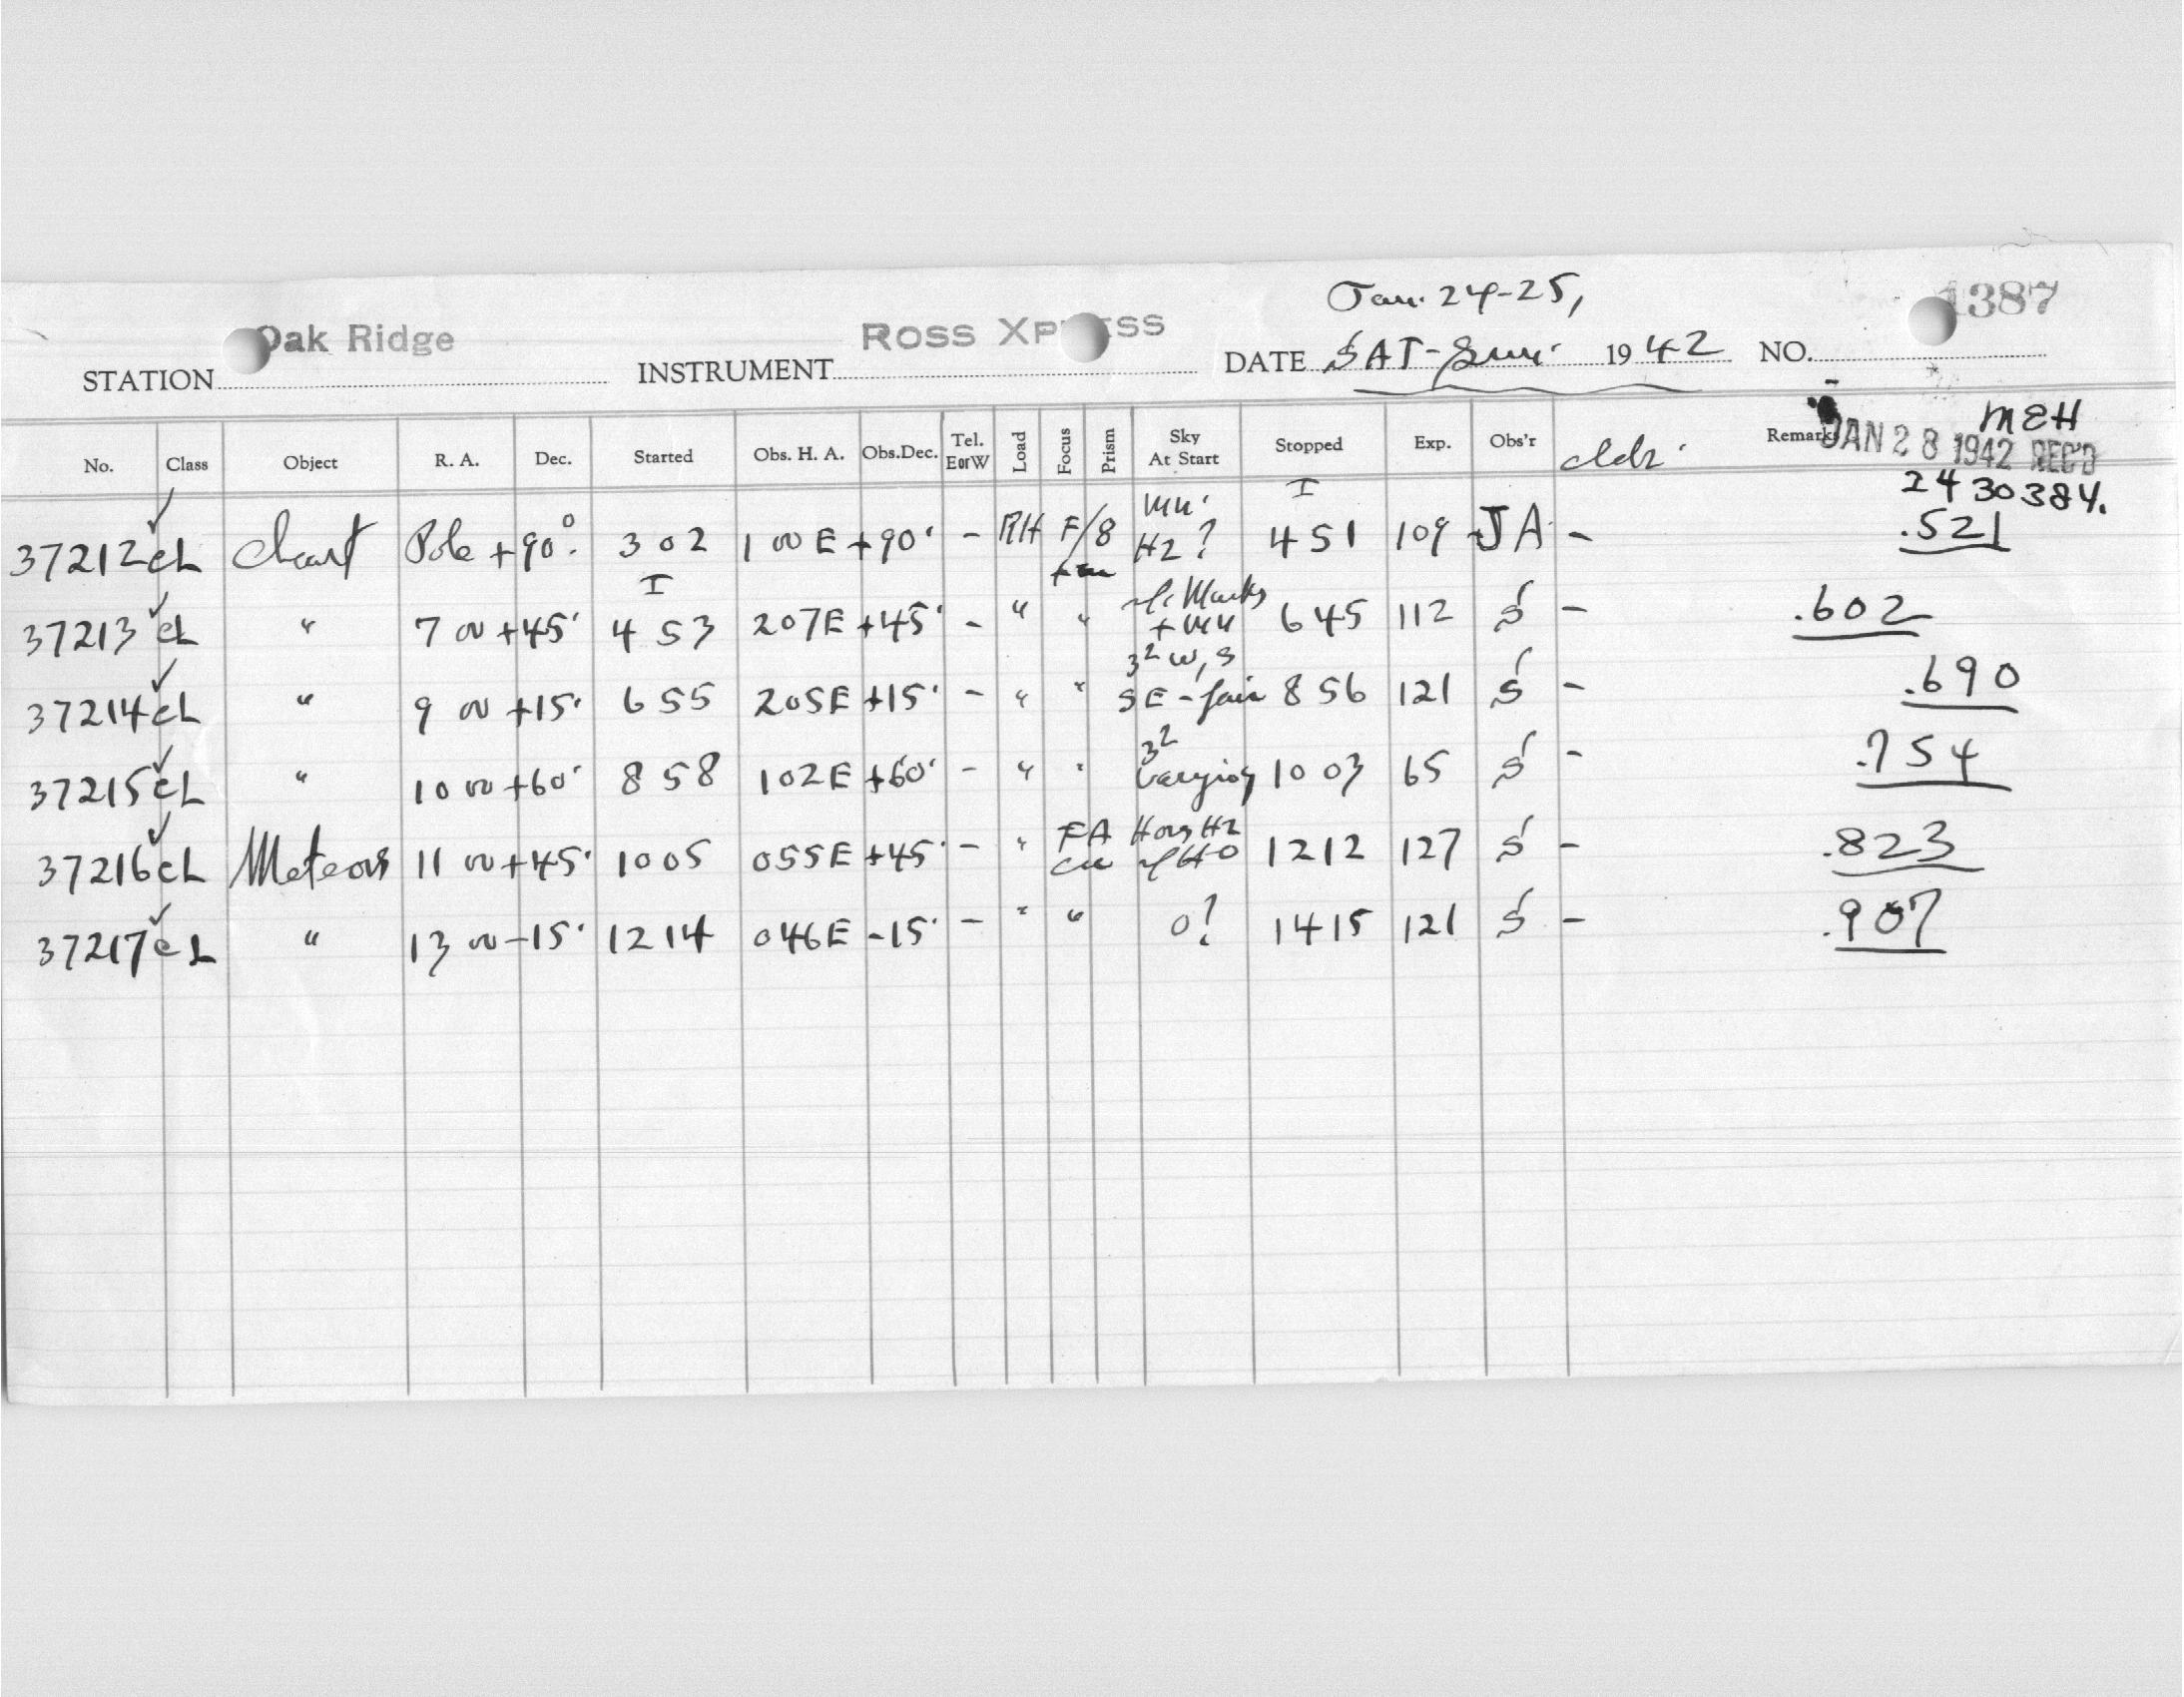 Jan. 24-25,
Oak Ridge ROSS XP SS 1387
STATION INSTRUMENT DATE SAT-Sun. 1942 NO.
MEH
No. Class Object R. A. Dec. Started Obs. H. A. Obs.Dec. Tel. E or W Load Focus Prism Sky At Start Stopped Exp. Obs'r Remark JAN 28 1942 REC'D
2430384.
37212 cL Chart Pole +90° 302 100E +90° - RH F/8 H2? 451 109 JA - .521
37213 cL " 7 00 +45° 453 207E +45° - " " 645 112 S - .602
37214 cL " 9 00 +15° 655 205E +15° - " " 3² W, S SE - fair 856 121 S - .690
37215 cL " 10 00 +60° 858 102E +60° - " " 3² Varying 1003 65 S - .754
37216 cL Meteors 11 00 +45° 1005 055E +45° - " FA 1212 127 S - .823
37217 cL " 13 00 -15° 1214 046E -15° - " " 0? 1415 121 S - .907